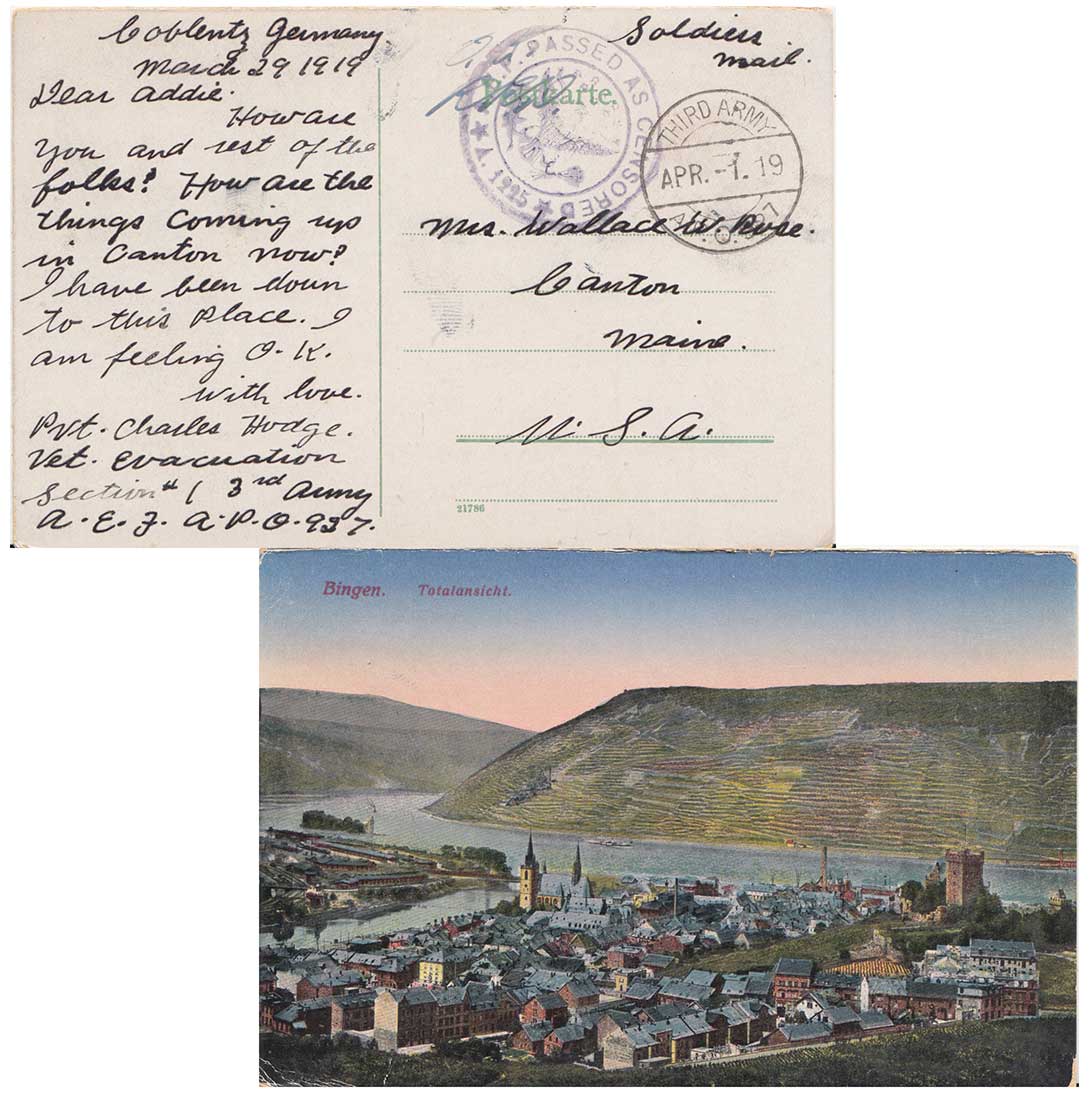 Coblentz Germany
March 29 1919
Dear Addie.
How are
You and rest of the
folks? How are the
things Coming up
in Canton now?
I have been down
to this Place. I
am feeling O.K.
with love.
Pvt. Charles Hodge.
Vet. Evacuation
Section #1 3rd Army
A.E.F. A.P.O. 937.
Soldiers
Mail.
Postkarte.
PASSED AS CENSORED
A. 1905
THIRD ARMY
APR.-1.19
A.P.O. 937
Mrs. Wallace W. Rose.
Canton
Maine.
U.S.A.
21786
Bingen. Totalansicht.